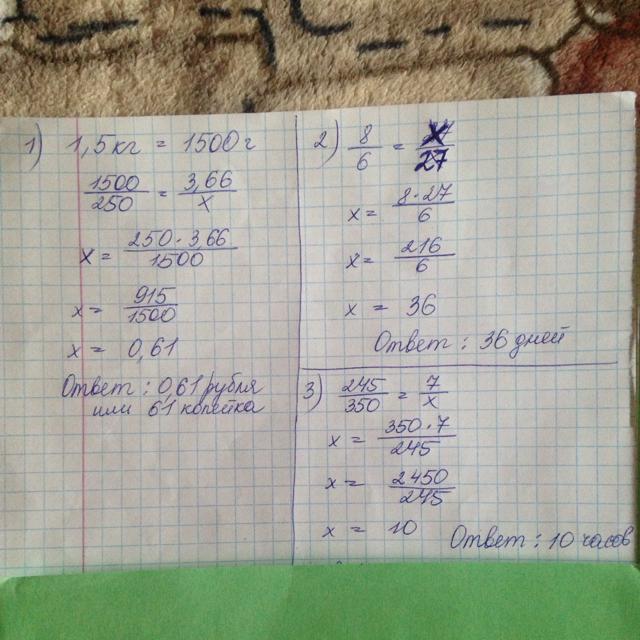 1) 1,5 кг = 1500 г
1500/250 = 3,66/x
x = 250·3,66/1500
x = 915/1500
x = 0,61
Ответ : 0,61 рубля
или 61 копейка
2) 8/6 = x/27
x = 8·27/6
x = 216/6
x = 36
Ответ : 36 дней
3) 245/350 = 7/x
x = 350·7/245
x = 2450/245
x = 10
Ответ : 10 часов